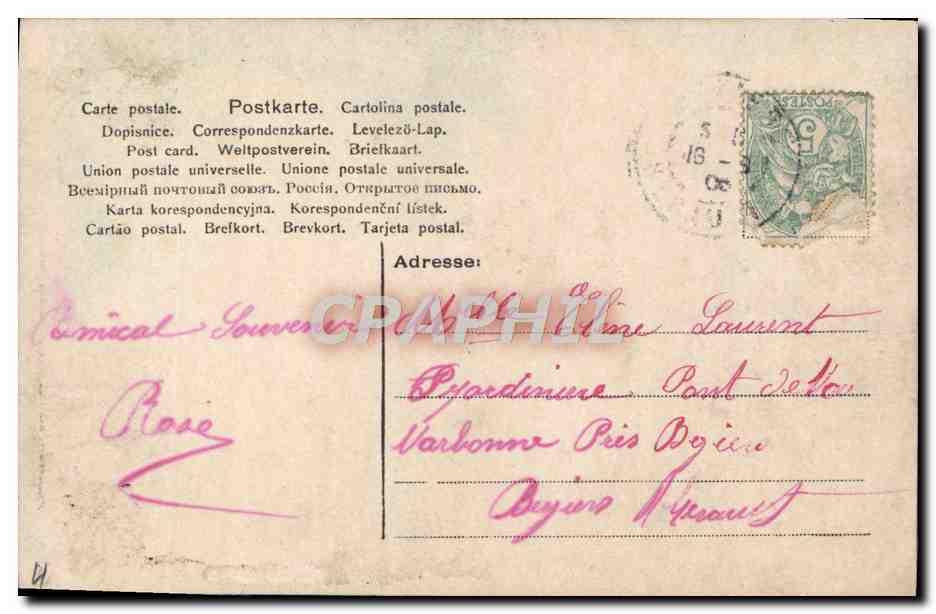 Carte postale. Postkarte. Cartolina postale.
Dopisnice. Correspondenzkarte. Levelező-Lap.
Post card. Weltpostverein. Briefkaart.
Union postale universelle. Unione postale universale.
Всемірный почтовый союзъ. Россія. Открытое письмо.
Karta korespondencyjna. Korespondenční lístek.
Cartão postal. Brefkort. Brevkort. Tarjeta postal.
POSTES
5
16 - 8
Adresse:
Amical Souvenir
Rose
Melle Eline Laurent
Pont de
Narbonne Près
Beziers
CPAPHIL
4